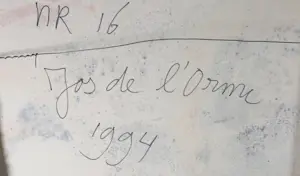 NR 16
Jos de l'Orme
1994